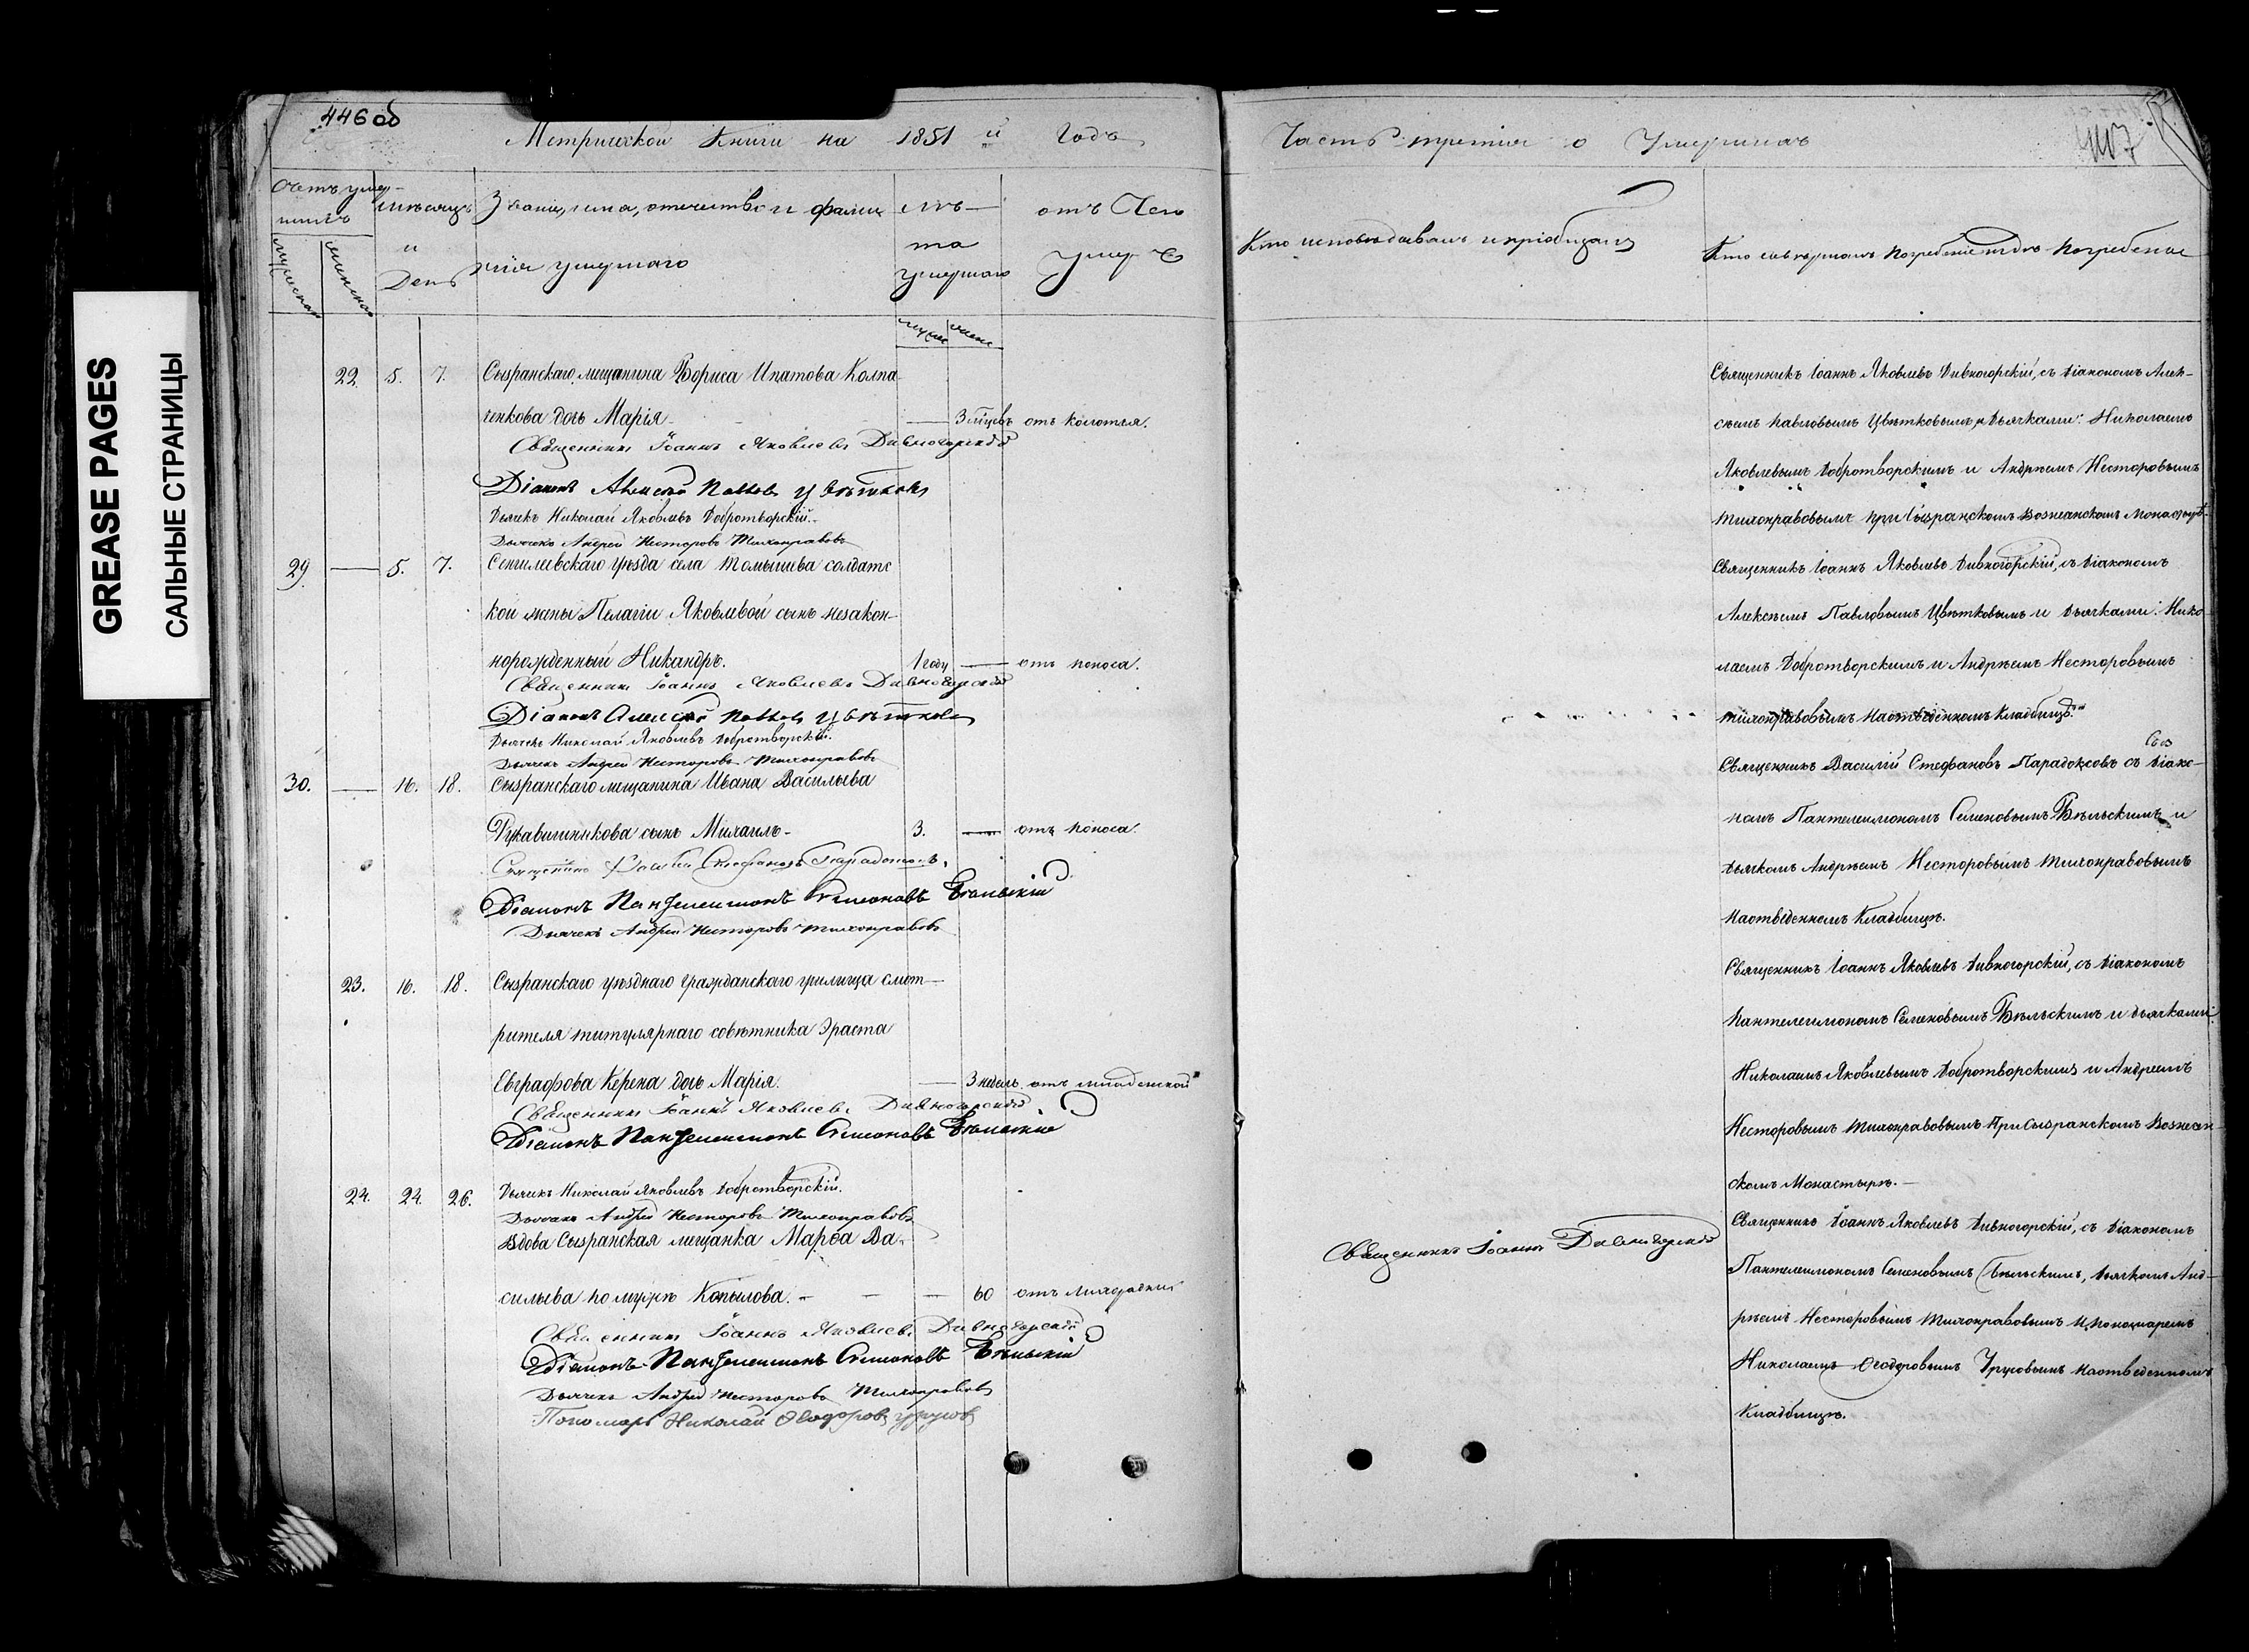 446 об
Метрической Книги на 1851 й Годъ
Часть третія о Умершихъ
447
GREASE PAGES
САЛЬНЫЕ СТРАНИЦЫ
Счетъ умер-
шихъ
мужеска
женска
Мѣсяцъ
и
День
Званіе, имя, отечество и фами
лія умершаго
лѣ-
та
умершаго
муже
женс
отъ Чего
умеръ
Кто исповѣдывалъ и пріобщалъ
Кто совершалъ погребеніе и гдѣ погребены
22. 5. 7. Сызранскаго мѣщанина Бориса Ипатова Колпа
ченкова дочь Марія — 3 мѣсцевъ отъ колотья.
Священникъ Іоаннъ Яковлевъ Дивногорскій
Діаконъ Алексѣй Павловъ Цвѣтковъ
Дьячекъ Николай Яковлевъ Добротворскій.
Дьячекъ Андрей Несторовъ Тихонравовъ
29. — 5. 7. Сенгилеевскаго уѣзда села Томышева солдатс
кой жены Пелагіи Яковлевой сынъ незакон-
норожденный Никандръ. 1 году — отъ поноса.
Священникъ Іоаннъ Яковлевъ Дивногорскій
Діаконъ Алексѣй Павловъ Цвѣтковъ
Дьячекъ Николай Яковлевъ Добротворскій.
Дьячекъ Андрей Несторовъ Тихонравовъ
30. — 16. 18. Сызранскаго мѣщанина Ивана Васильева
Рукавишникова сынъ Михаилъ - 3. — отъ поноса.
Священникъ Василій Стефановъ Парадоксовъ.
Діаконъ Пантелеимонъ Симеоновъ Бѣльскій
Дьячекъ Андрей Несторовъ Тихонравовъ
23. 16. 18. Сызранскаго уѣзднаго гражданскаго училища смот-
рителя титулярнаго совѣтника Эраста
Евграфова Керена дочь Марія. — 3 недель отъ младенской
Священникъ Іоаннъ Яковлевъ Дивногорскій
Діаконъ Пантелеимонъ Симеоновъ Бѣльскій
Дьячекъ Николай Яковлевъ Добротворскій.
Дьячекъ Андрей Несторовъ Тихонравовъ
24. 24. 26. Вдова Сызранская мѣщанка Марѳа Ва-
сильева по мужѣ Копылова. - — — 60 отъ лихорадки
Священникъ Іоаннъ Яковлевъ Дивногорскій
Діаконъ Пантелеимонъ Симеоновъ Бѣльскій
Дьячекъ Андрей Несторовъ Тихонравовъ
Пономарь Николай Ѳеодоровъ Урусовъ
Священникъ Іоаннъ Дивногорскій
Священникъ Іоаннъ Яковлевъ Дивногорскій, съ діакономъ Алек-
сѣемъ Павловымъ Цвѣтковымъ, и дьячками: Николаемъ
Яковлевымъ Добротворскимъ и Андрѣемъ Несторовымъ
Тихонравовымъ при Сызранскомъ Вознесенскомъ Монастырѣ.
Священникъ Іоаннъ Яковлевъ Дивногорскій, съ діакономъ
Алексѣемъ Павловымъ Цвѣтковымъ и дьячками: Нико
лаемъ Добротворскимъ и Андрѣемъ Несторовымъ
Тихонравовымъ на отведенномъ кладбищѣ.
Священникъ Василій Стефановъ Парадоксовъ съ діако-
номъ Пантелеимономъ Семеновымъ Бѣльскимъ и
дьячкомъ Андрѣемъ Несторовымъ Тихонравовымъ
на отведенномъ кладбищѣ.
Священникъ Іоаннъ Яковлевъ Дивногорскій, съ діакономъ
Пантелеимономъ Семеновымъ Бѣльскимъ и дьячками:
Николаемъ Яковлевымъ Добротворскимъ и Андреемъ
Несторовымъ Тихонравовымъ при Сызранскомъ Вознесен
скомъ Монастырѣ. —
Священникъ Іоаннъ Яковлевъ Дивногорскій, съ діакономъ
Пантелеимономъ Семеновымъ Бѣльскимъ, дьячкомъ Анд-
рѣемъ Несторовымъ Тихонравовымъ и пономаремъ
Николаемъ Ѳеодоровымъ Урусовымъ на отведенномъ
кладбищѣ.